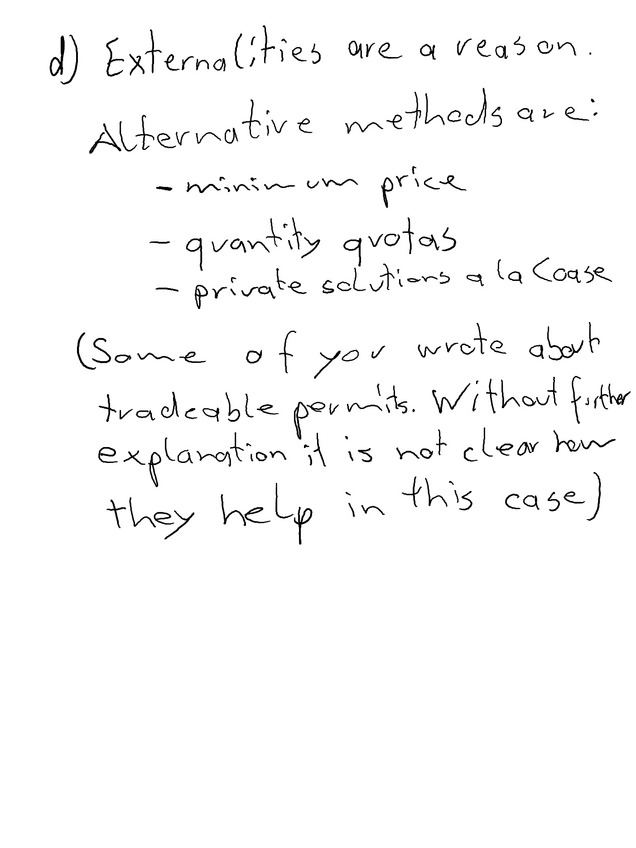 d) Externalities are a reason.
Alternative methods are:
- minimum price
- quantity quotas
- private solutions a la Coase
(Some of you wrote about
tradeable permits. Without further
explanation it is not clear how
they help in this case)